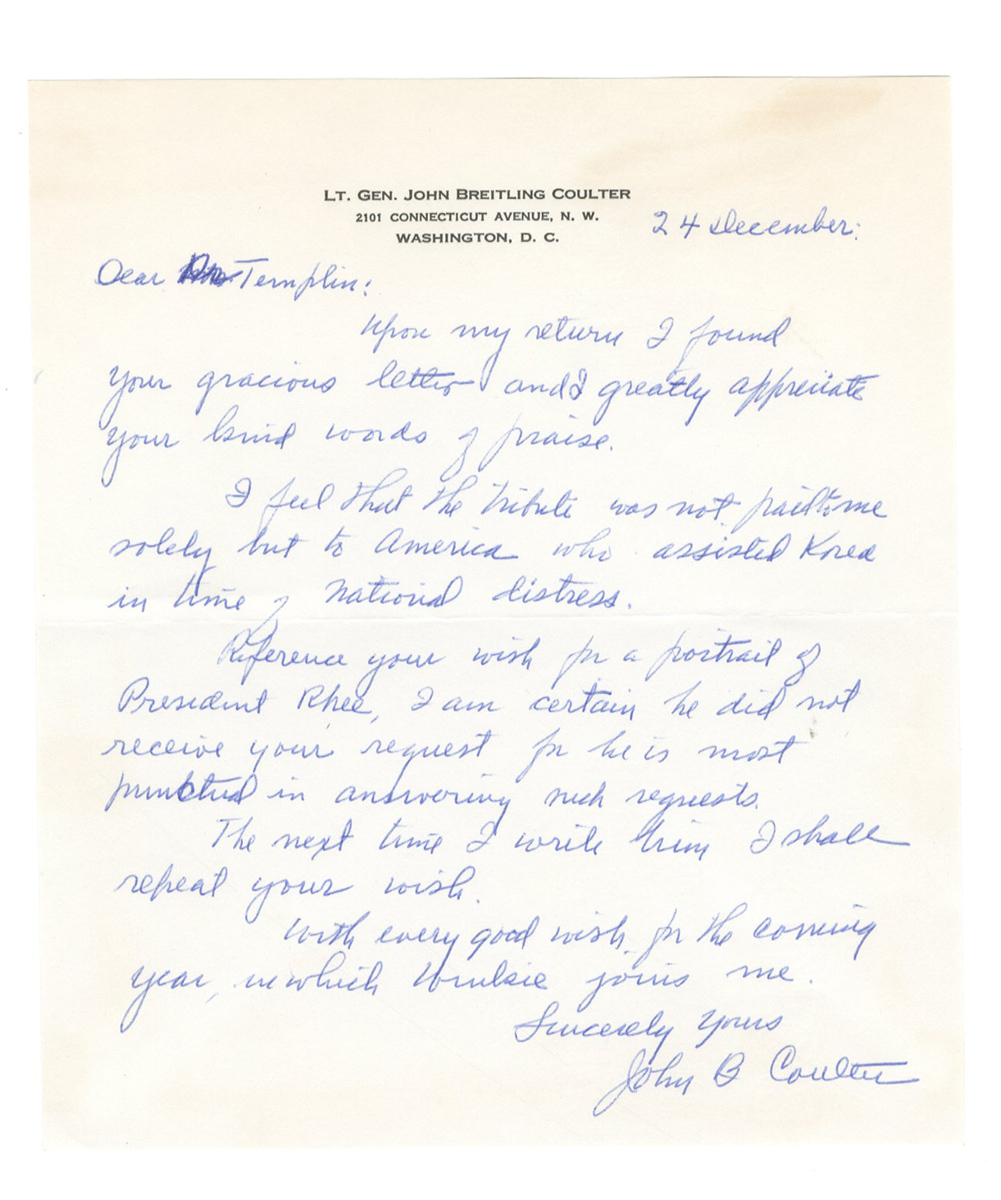 LT. GEN. JOHN BREITLING COULTER
2101 CONNECTICUT AVENUE, N. W.
WASHINGTON, D. C.
24 December:
Dear Templin:
Upon my return I found
your gracious letter and I greatly appreciate
your kind words of praise.
I feel that the tribute was not paid to me
solely but to America who assisted Korea
in time of National distress.
Reference your wish for a portrait of
President Rhee, I am certain he did not
receive your request for he is most
punctual in answering such requests.
The next time I write him I shall
repeat your wish.
With every good wish for the coming
year, in which joins me.
Sincerely Yours
John B Coulter